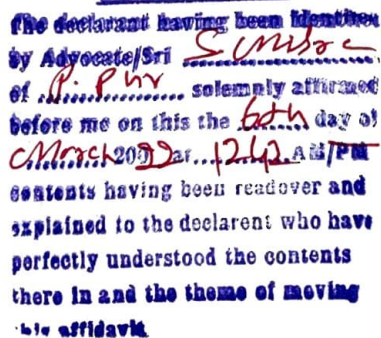 The declarant having been identified
by Advocate/Sri S Misra
of P. Pur solemnly affirmed
before me on this the 6th day of
March 2022 at 12:42 AM/PM
contents having been readover and
explained to the declarent who have
perfectly understood the contents
there in and the theme of moving
this affidavit